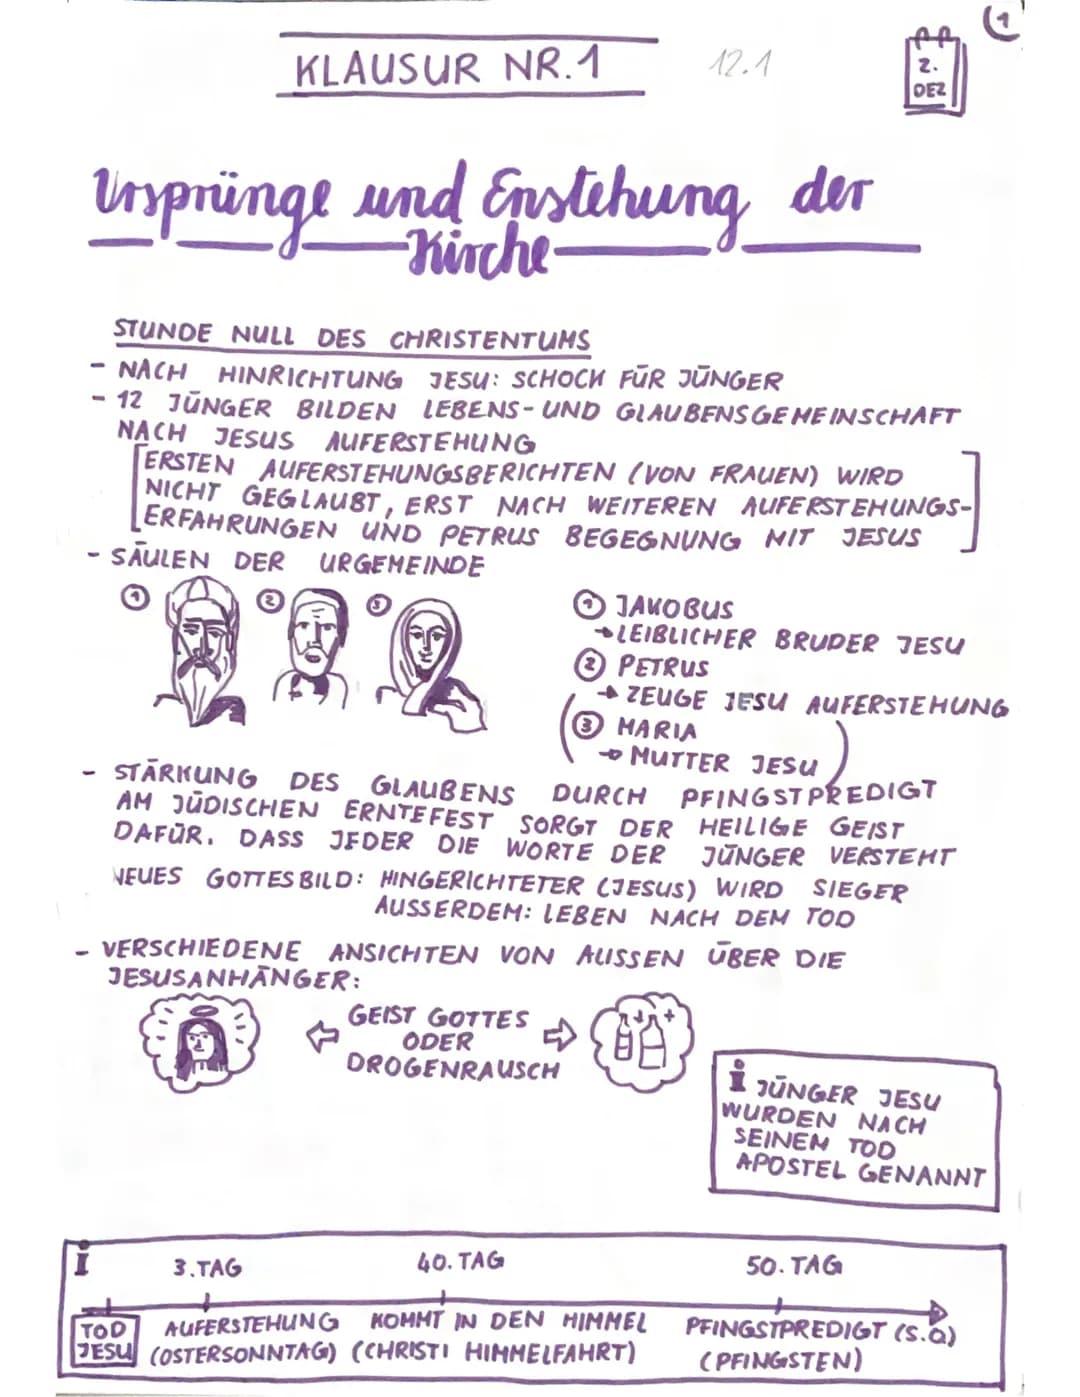 (1
KLAUSUR NR.1
12.1
2.
DEZ
Ursprünge und Enstehung der
Kirche
STUNDE NULL DES CHRISTENTUMS
- NACH HINRICHTUNG JESU: SCHOCK FÜR JÜNGER
- 12 JÜNGER BILDEN LEBENS- UND GLAUBENSGEMEINSCHAFT
NACH JESUS AUFERSTEHUNG
[ERSTEN AUFERSTEHUNGSBERICHTEN (VON FRAUEN) WIRD
NICHT GEGLAUBT, ERST NACH WEITEREN AUFERSTEHUNGS-
ERFAHRUNGEN UND PETRUS BEGEGNUNG MIT JESUS]
- SÄULEN DER URGEMEINDE
① ② ③
① JAKOBUS
→ LEIBLICHER BRUDER JESU
② PETRUS
→ ZEUGE JESU AUFERSTEHUNG
(③ MARIA
→ MUTTER JESU)
- STÄRKUNG DES GLAUBENS DURCH PFINGSTPREDIGT
AM JÜDISCHEN ERNTEFEST SORGT DER HEILIGE GEIST
DAFÜR, DASS JEDER DIE WORTE DER JÜNGER VERSTEHT
NEUES GOTTESBILD: HINGERICHTETER (JESUS) WIRD SIEGER
AUSSERDEM: LEBEN NACH DEM TOD
- VERSCHIEDENE ANSICHTEN VON AUSSEN ÜBER DIE
JESUSANHÄNGER:
⇦ GEIST GOTTES ⇨
ODER
DROGENRAUSCH
i JÜNGER JESU
WURDEN NACH
SEINEM TOD
APOSTEL GENANNT
i 3. TAG 40. TAG 50. TAG
TOD AUFERSTEHUNG KOMMT IN DEN HIMMEL PFINGSTPREDIGT (S.O)
JESU (OSTERSONNTAG) (CHRISTI HIMMELFAHRT) (PFINGSTEN)